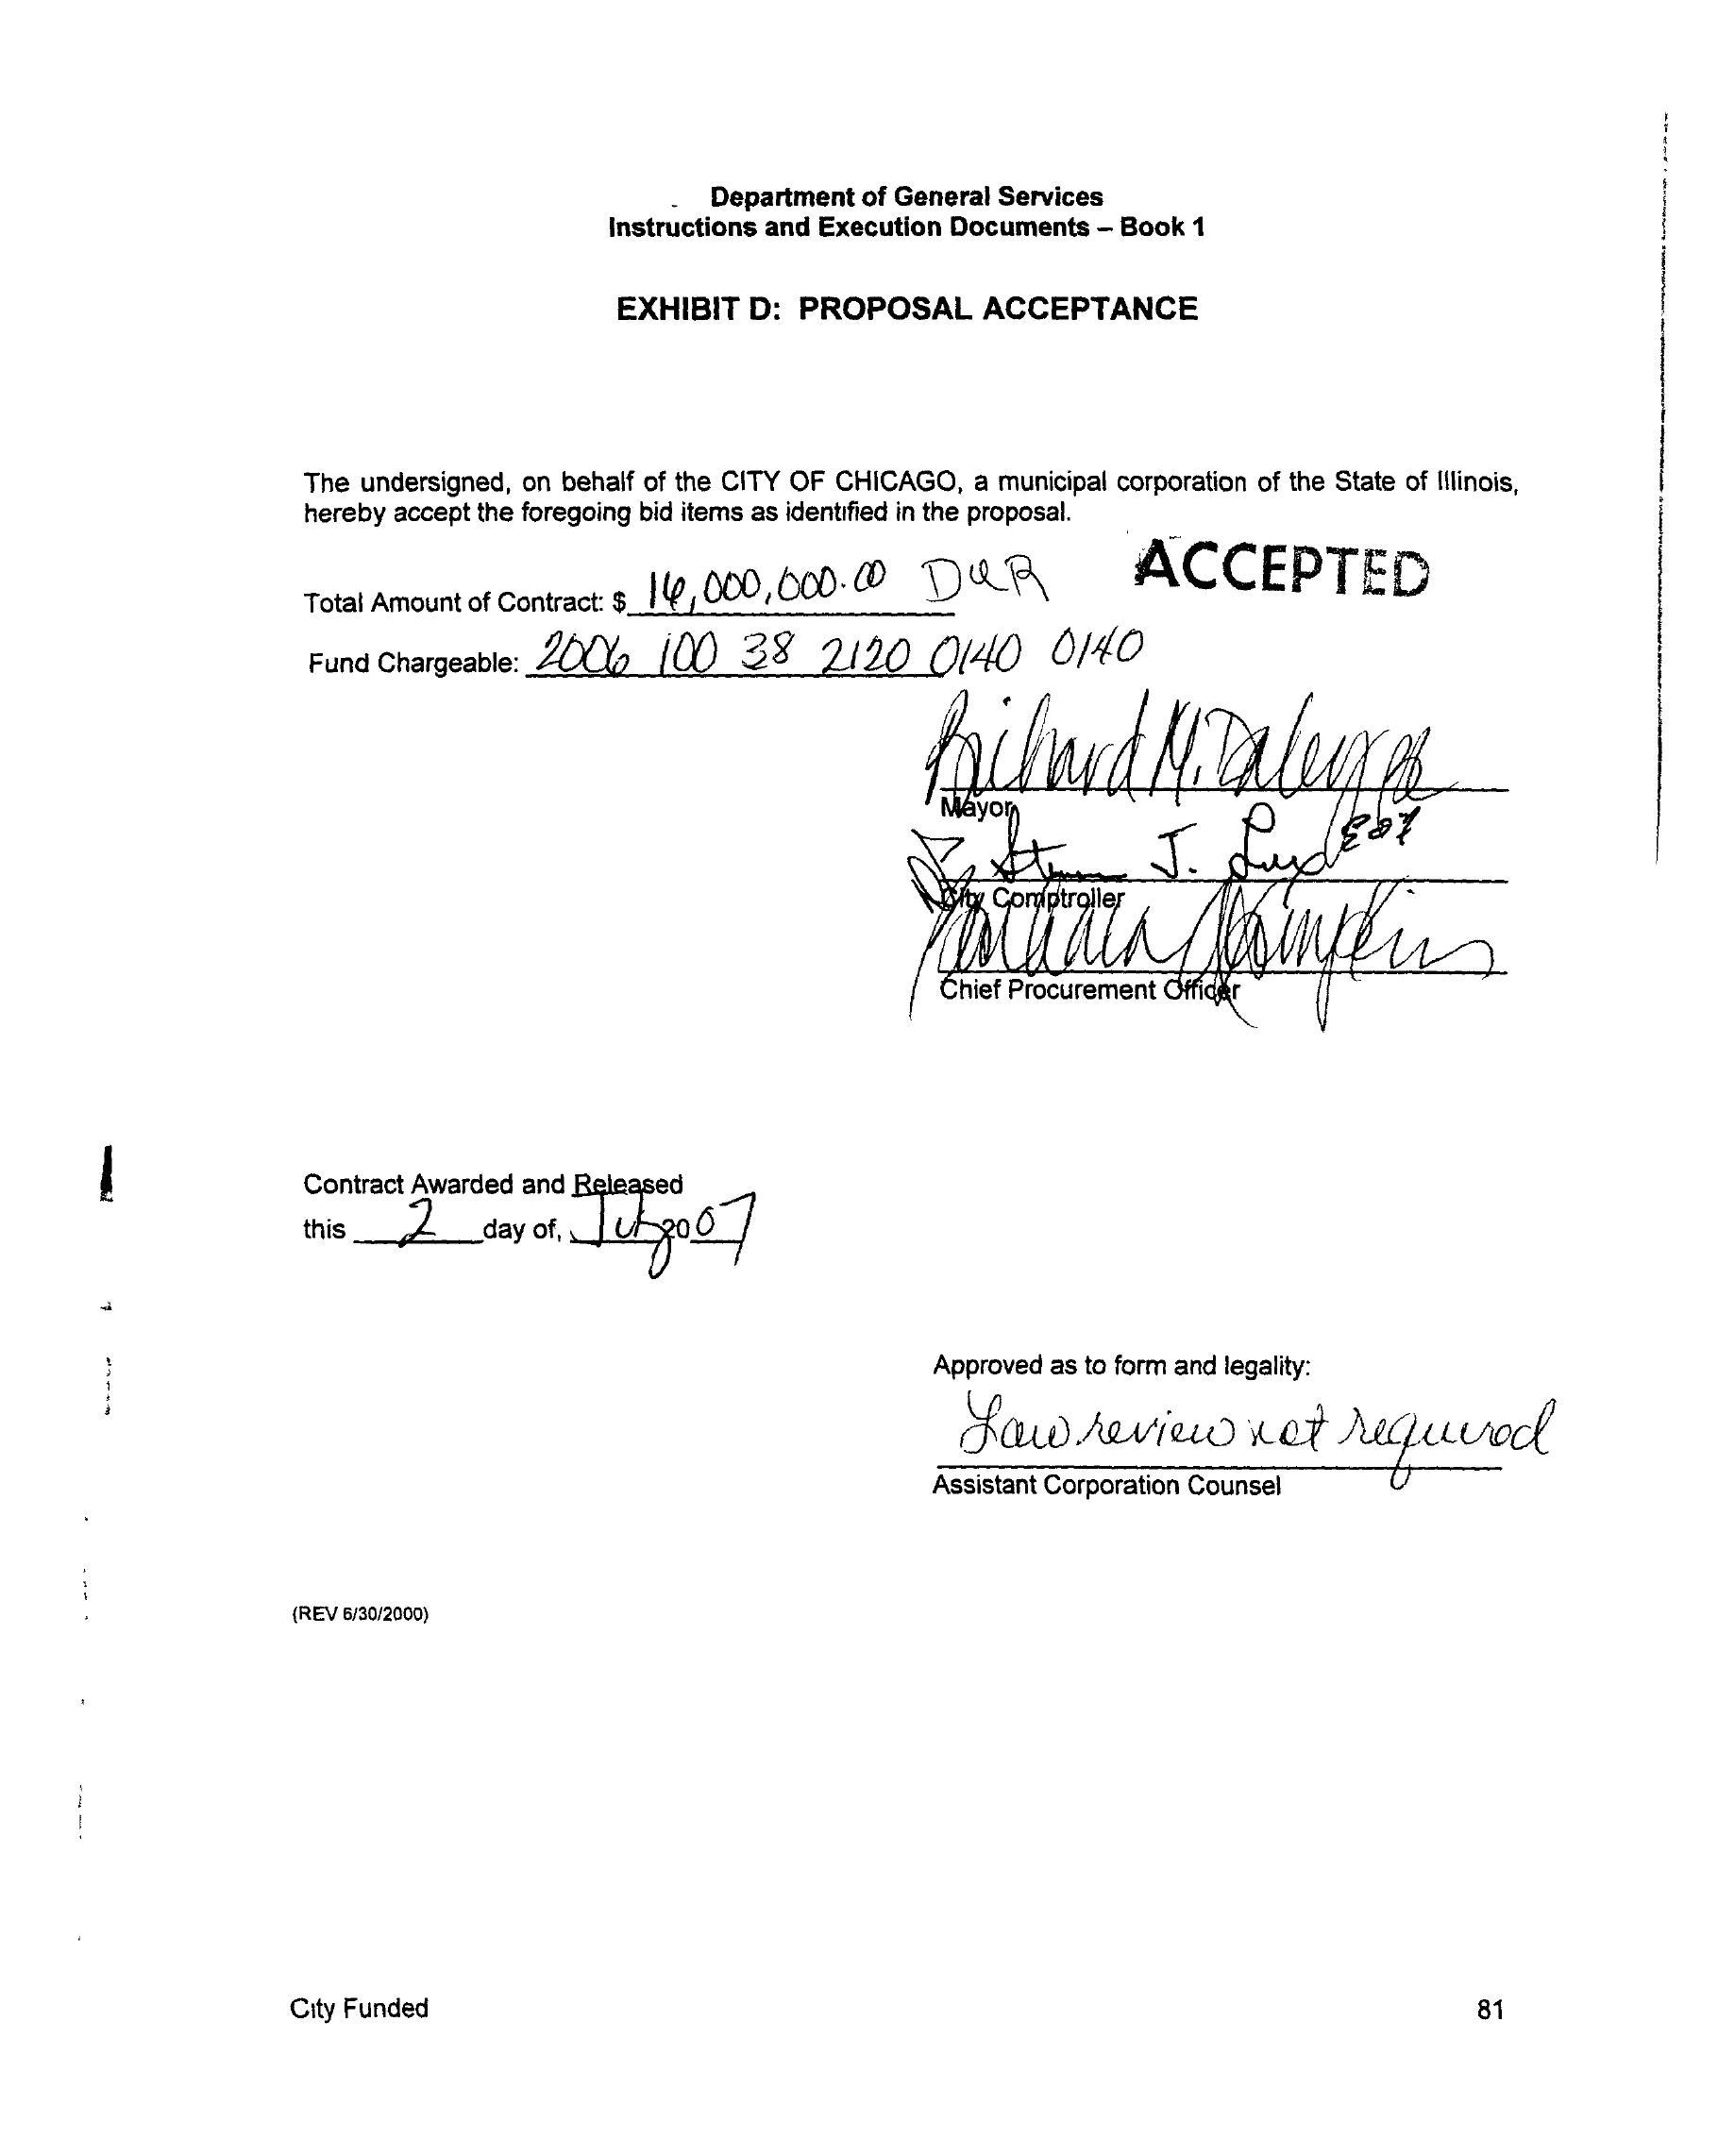 Department of General Services
Instructions and Execution Documents – Book 1
EXHIBIT D: PROPOSAL ACCEPTANCE
The undersigned, on behalf of the CITY OF CHICAGO, a municipal corporation of the State of Illinois,
hereby accept the foregoing bid items as identified in the proposal.
ACCEPTED
Total Amount of Contract: $ 16,000,000.00 DUR
Fund Chargeable: 2006 100 38 2120 0140 0140
Richard M. Daley
Mayor
J.
City Comptroller
Chief Procurement Officer
Contract Awarded and Released
this 2 day of, July 20 07
Approved as to form and legality:
Law review not required
Assistant Corporation Counsel
(REV 6/30/2000)
City Funded 81